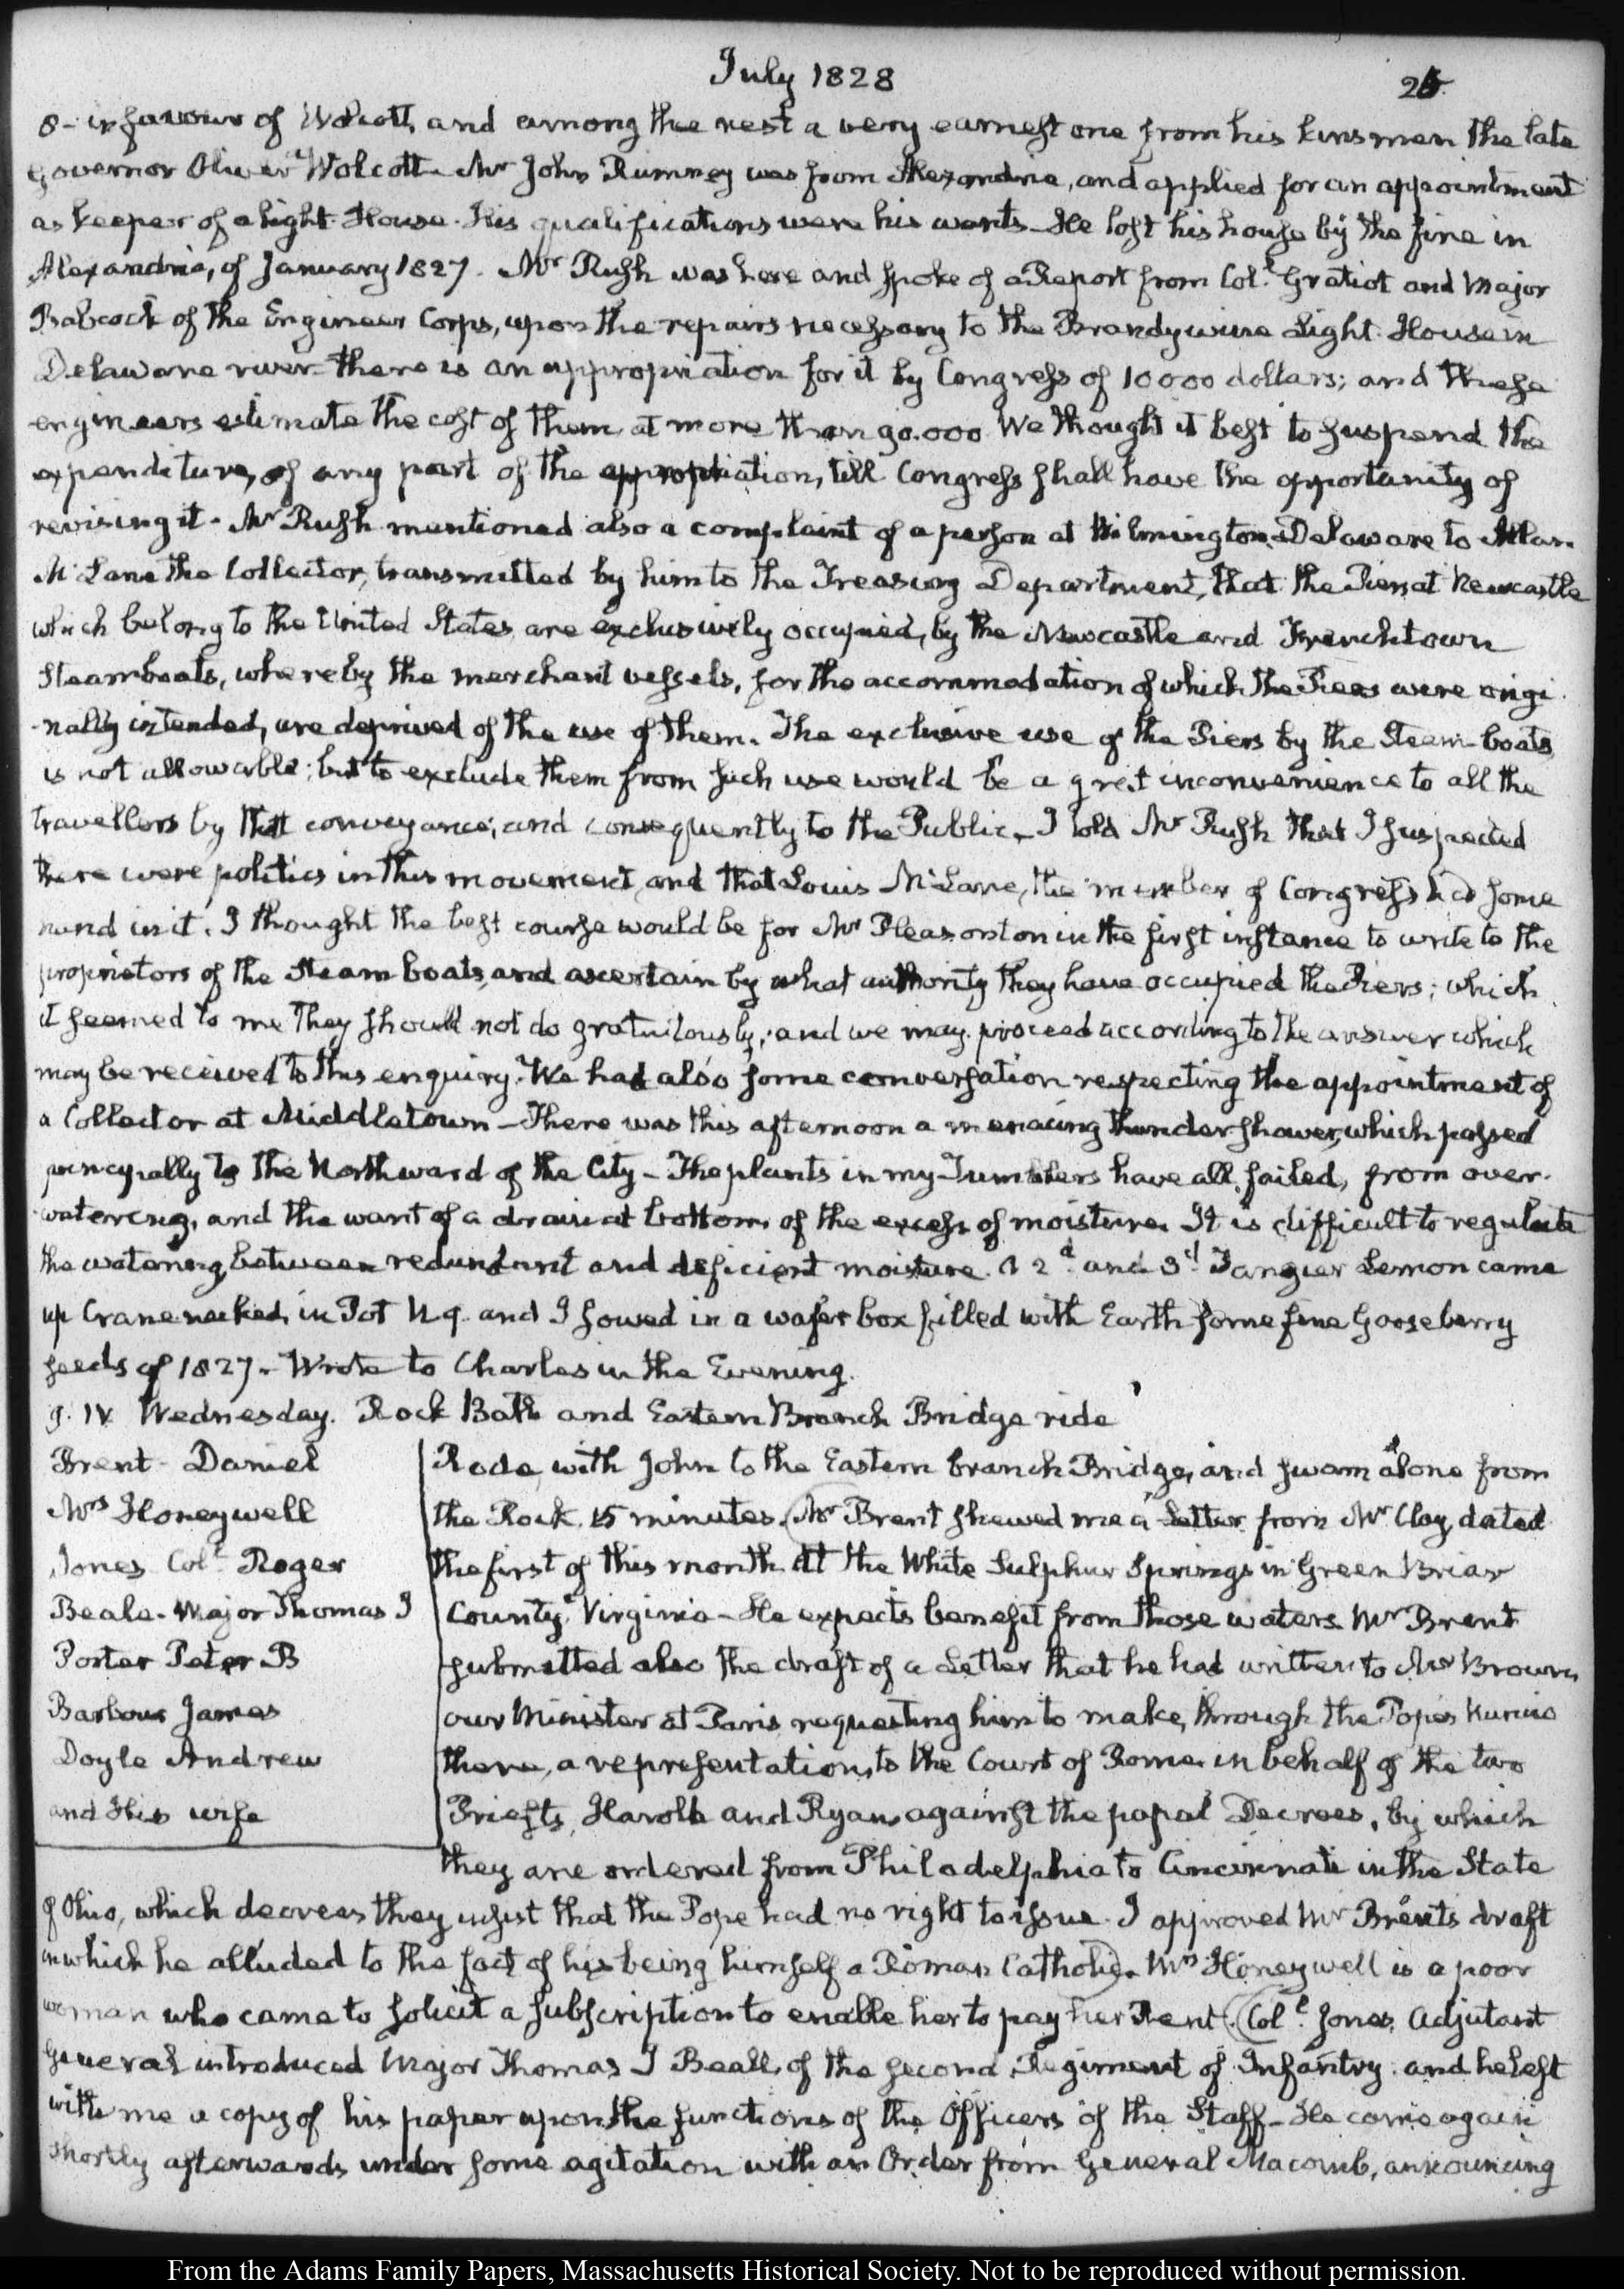 July 1828
25.
8- in favour of Wolcott, and among the rest a very earnest one from his kinsman the late
Governor Oliver Wolcott. Mr John Rumney was from Alexandria, and applied for an appointment
as keeper of a Light-House. His qualifications were his wants. He lost his house by the fire in
Alexandria, of January 1827. Mr Rush was here and spoke of a Report from Colt. Gratiot and Major
Babcock of the Engineer Corps, upon the repairs necessary to the Brandywine Light-House in
Delaware river. there is an appropriation for it by Congress of 10000 dollars; and these
engineers estimate the cost of them at more than 90.000 We thought it best to suspend the
expenditure, of any part of the appropriation, till Congress shall have the opportunity of
revising it. Mr Rush mentioned also a complaint of a person at Wilmington Delaware to Allan
McLane the Collector, transmitted by him to the Treasury Department, that the Piers at Newcastle
which belong to the United States are exclusively occupied, by the Newcastle and Frenchtown
Steamboats, whereby the merchant vessels, for the accommodation of which the Piers were origi
-nally intended, are deprived of the use of them. The exclusive use of the Piers by the Steam-boats
is not allowable; but to exclude them from such use would be a great inconvenience to all the
travellers by that conveyance, and consequently to the Public. I told Mr Rush that I suspected
there were politics in this movement, and that Louis McLane, the member of Congress had some
hand in it. I thought the best course would be for Mr Pleasonton in the first instance to write to the
proprietors of the Steam boats, and ascertain by what authority they have occupied the Piers; which
it seemed to me they should not do gratuitously; and we may proceed according to the answer which
may be received to this enquiry. We had also some conversation respecting the appointment of
a Collector at Middletown - There was this afternoon a menacing thunder shower, which passed
principally to the Northward of the City - The plants in my Tumblers have all failed, from over-
watering, and the want of a drain at bottom of the excess of moisture. It is difficult to regulate
the watering between redundant and deficient moisture. A 2d. and 3d. Tangier Lemon came
up Crane necked, in Pot N 9. and I sowed in a wafer box filled with Earth some fine Gooseberry
seeds of 1827. Wrote to Charles in the Evening.
9. IV. Wednesday. Rock Bath and Eastern Branch Bridge ride
Brent - Daniel
Mrs Honeywell
Jones Colt Roger
Beale. Major Thomas J
Porter Peter B
Barbour James
Doyle Andrew
and His wife
Rode with John to the Eastern branch Bridge, and swam alone from
the Rock 15 minutes. Mr Brent shewed me a Letter from Mr Clay, dated
the first of this month at the White Sulphur Springs in Green Briar
County, Virginia - He expects benefit from those waters. Mr Brent
submitted also the draft of a Letter that he had written to Mr Brown
our Minister at Paris requesting him to make, through the Pope's Nuncio
there, a representation to the Court of Rome in behalf of the two
Priests, Harold and Ryan against the papal Decrees, by which
they are ordered from Philadelphia to Cincinnati in the State
of Ohio, which decrees they insist that the Pope had no right to issue. I approved Mr Brent's draft
in which he alluded to the fact of his being himself a Roman Catholic. Mrs Honeywell is a poor
woman who came to solicit a subscription to enable her to pay her Rent. Colt. Jones, Adjutant
General introduced Major Thomas J Beall, of the second Regiment of Infantry. and he left
with me a copy of his paper upon the functions of the Officers of the Staff - He came again
shortly afterwards under some agitation with an Order from General Macomb, announcing
From the Adams Family Papers, Massachusetts Historical Society. Not to be reproduced without permission.